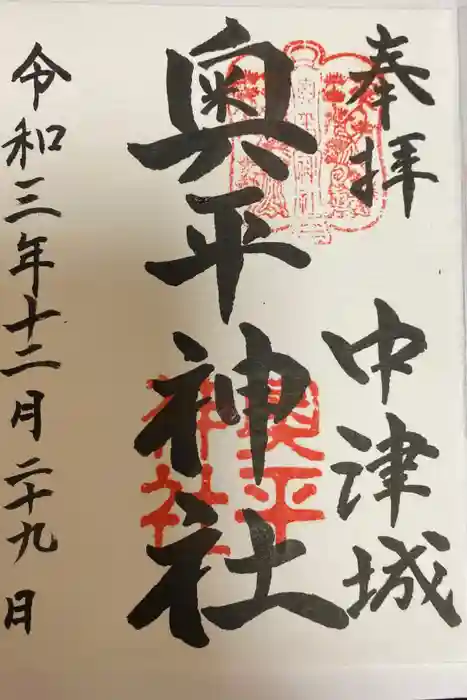 奉拝
中津城
奥平神社
奥平神社
奥平神社
令和三年十二月二十九日